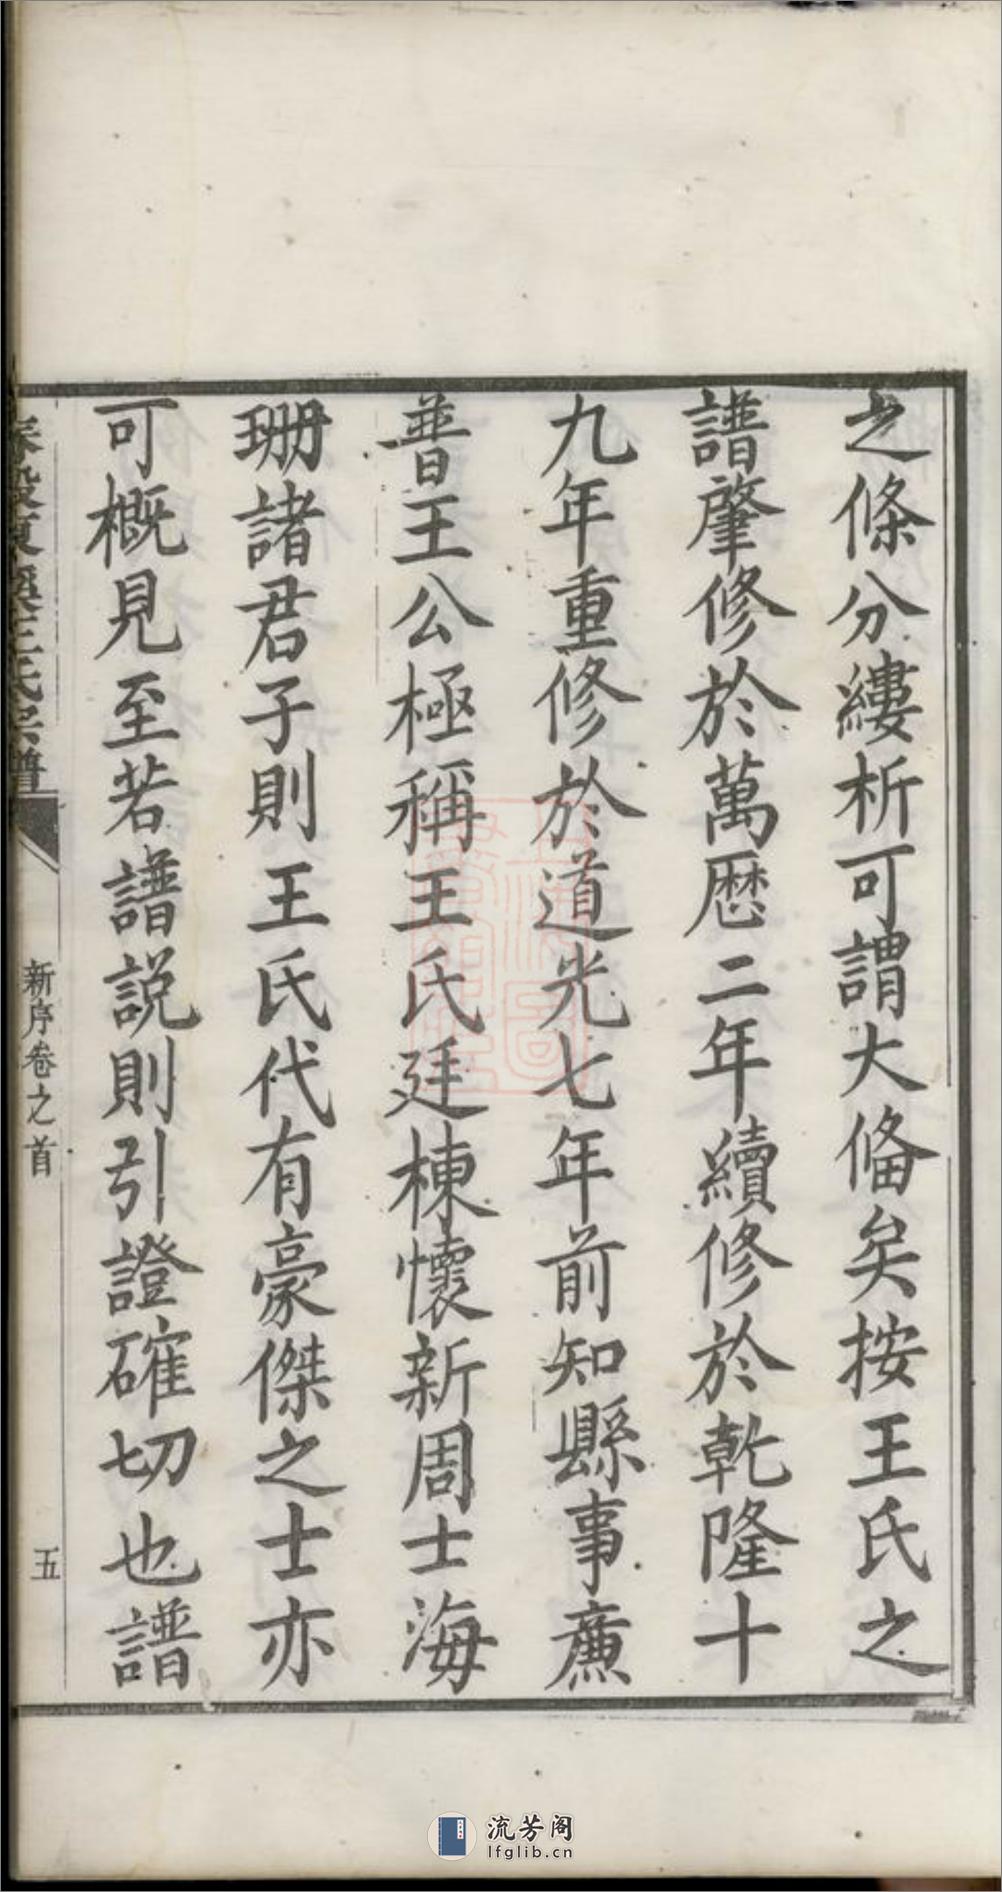 之條分縷析可謂大僃矣按王氏之
譜肇修於萬厯二年續修於乾隆十
九年重修於道光七年前知縣事廉
普王公極稱王氏廷棟懷新周士海
珊諸君子則王氏代有豪傑之士亦
可概見至若譜説則引證確切也譜
王氏宗譜
新序卷之首
五
流芳阁
lfglib.cn